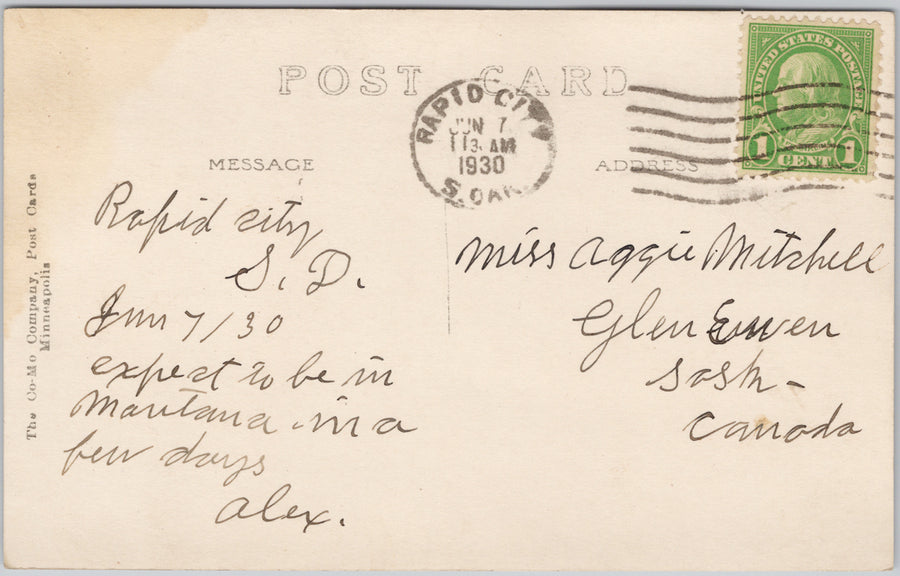 POST CARD
RAPID CITY
JUN 7
11 3- AM
1930
S. DAK.
UNITED STATES POSTAGE
1 CENT 1
MESSAGE
ADDRESS
The Co-Mo Company, Post Cards
Minneapolis
Rapid city
S. D.
Jun 7/30
expect to be in
Montana in a
few days
Alex.
Miss Aggie Mitchell
Glen Ewen
Sask-
Canada